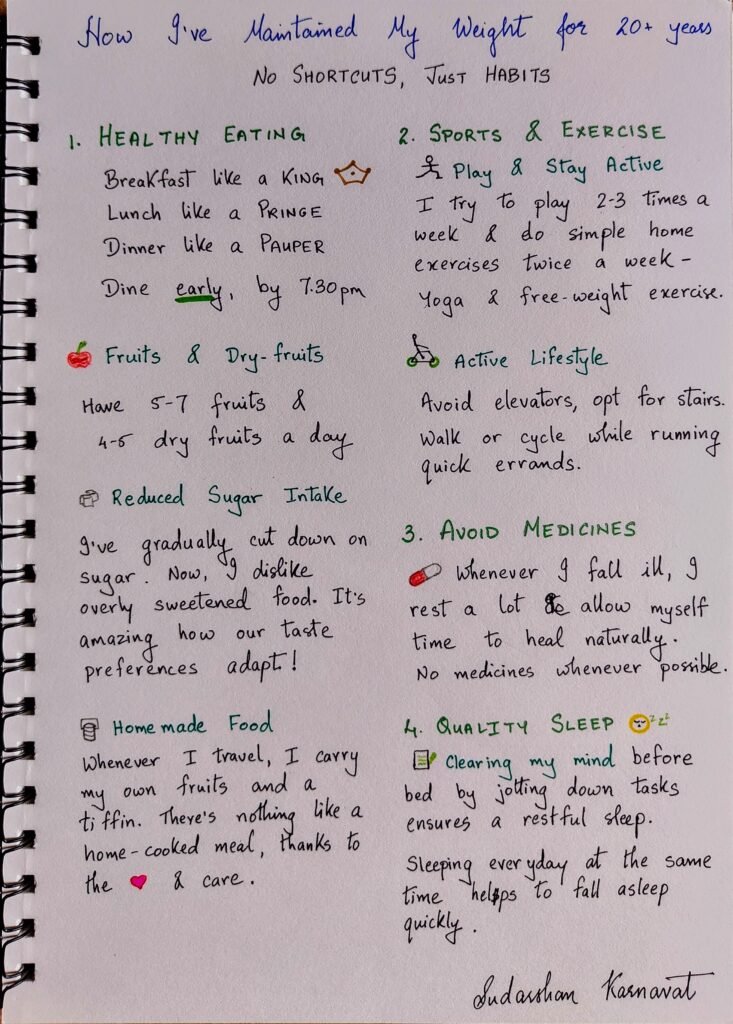 How I've Maintained My Weight for 20+ years
No Shortcuts, Just Habits
1. HEALTHY EATING
Breakfast like a KING
Lunch like a PRINCE
Dinner like a PAUPER
Dine early, by 7.30pm
Fruits & Dry-fruits
Have 5-7 fruits &
4-5 dry fruits a day
Reduced Sugar Intake
I've gradually cut down on
sugar. Now, I dislike
overly sweetened food. It's
amazing how our taste
preferences adapt!
Homemade Food
Whenever I travel, I carry
my own fruits and a
tiffin. There's nothing like a
home-cooked meal, thanks to
the ❤ & care.
2. SPORTS & EXERCISE
Play & Stay Active
I try to play 2-3 times a
week & do simple home
exercises twice a week -
Yoga & free-weight exercise.
Active Lifestyle
Avoid elevators, opt for stairs.
Walk or cycle while running
quick errands.
3. AVOID MEDICINES
Whenever I fall ill, I
rest a lot & allow myself
time to heal naturally.
No medicines whenever possible.
4. QUALITY SLEEP zzz
Clearing my mind before
bed by jotting down tasks
ensures a restful sleep.
Sleeping everyday at the same
time helps to fall asleep
quickly.
Sudarshan Karnavat